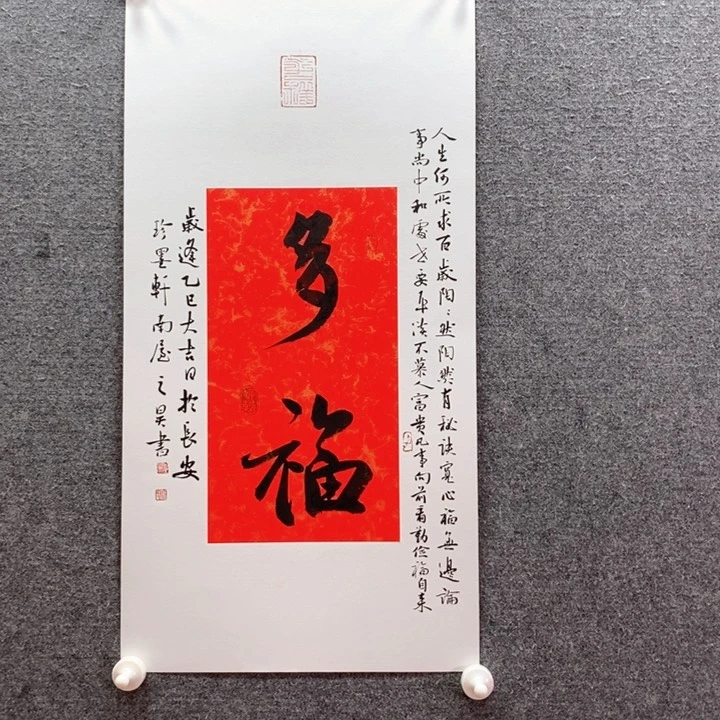 人生何所求百歲陶陶然陶然有秘訣寬心福無邊論
事尚中和處世要平淡不慕人富貴凡事向前看勤儉福自来
多福
歲逢乙巳大吉日於長安
珍墨軒南屋之昊書